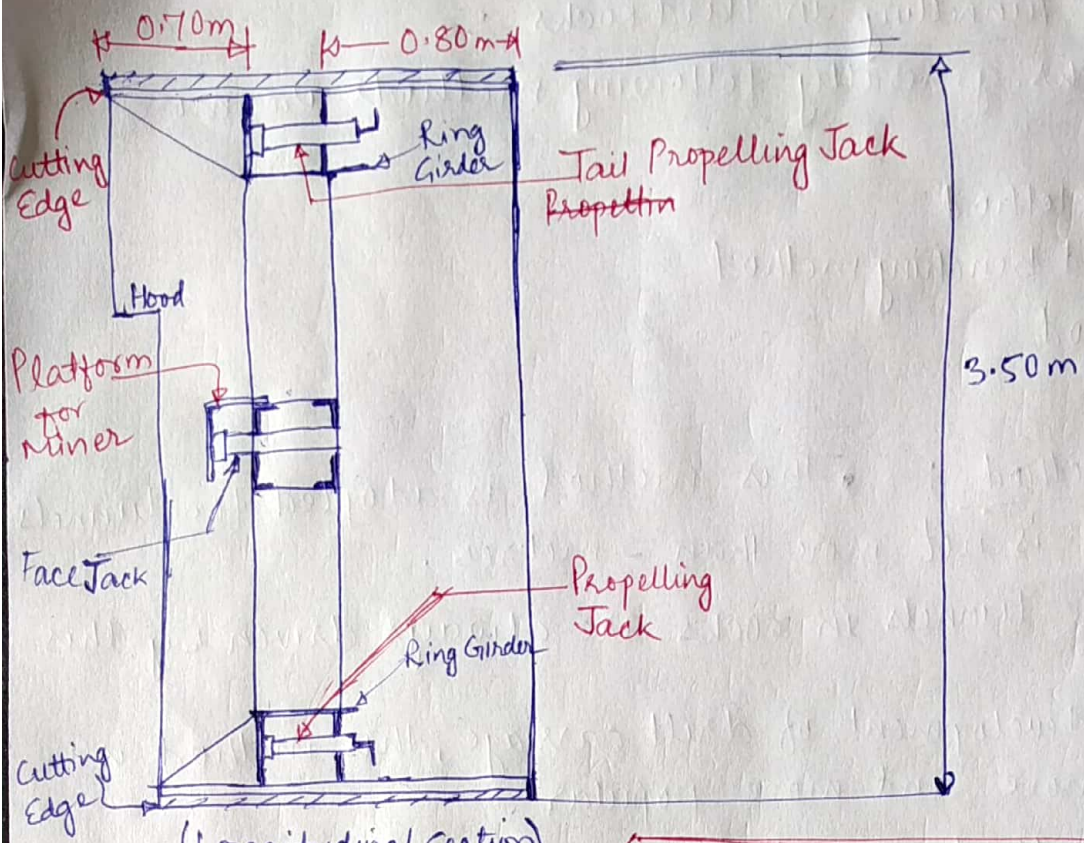 0.70m
0.80m
Cutting
Edge
Ring
Girder
Tail Propelling Jack
Hood
Platform
for
Miner
3.50m
Face Jack
Propelling
Jack
Ring Girder
Cutting
Edge